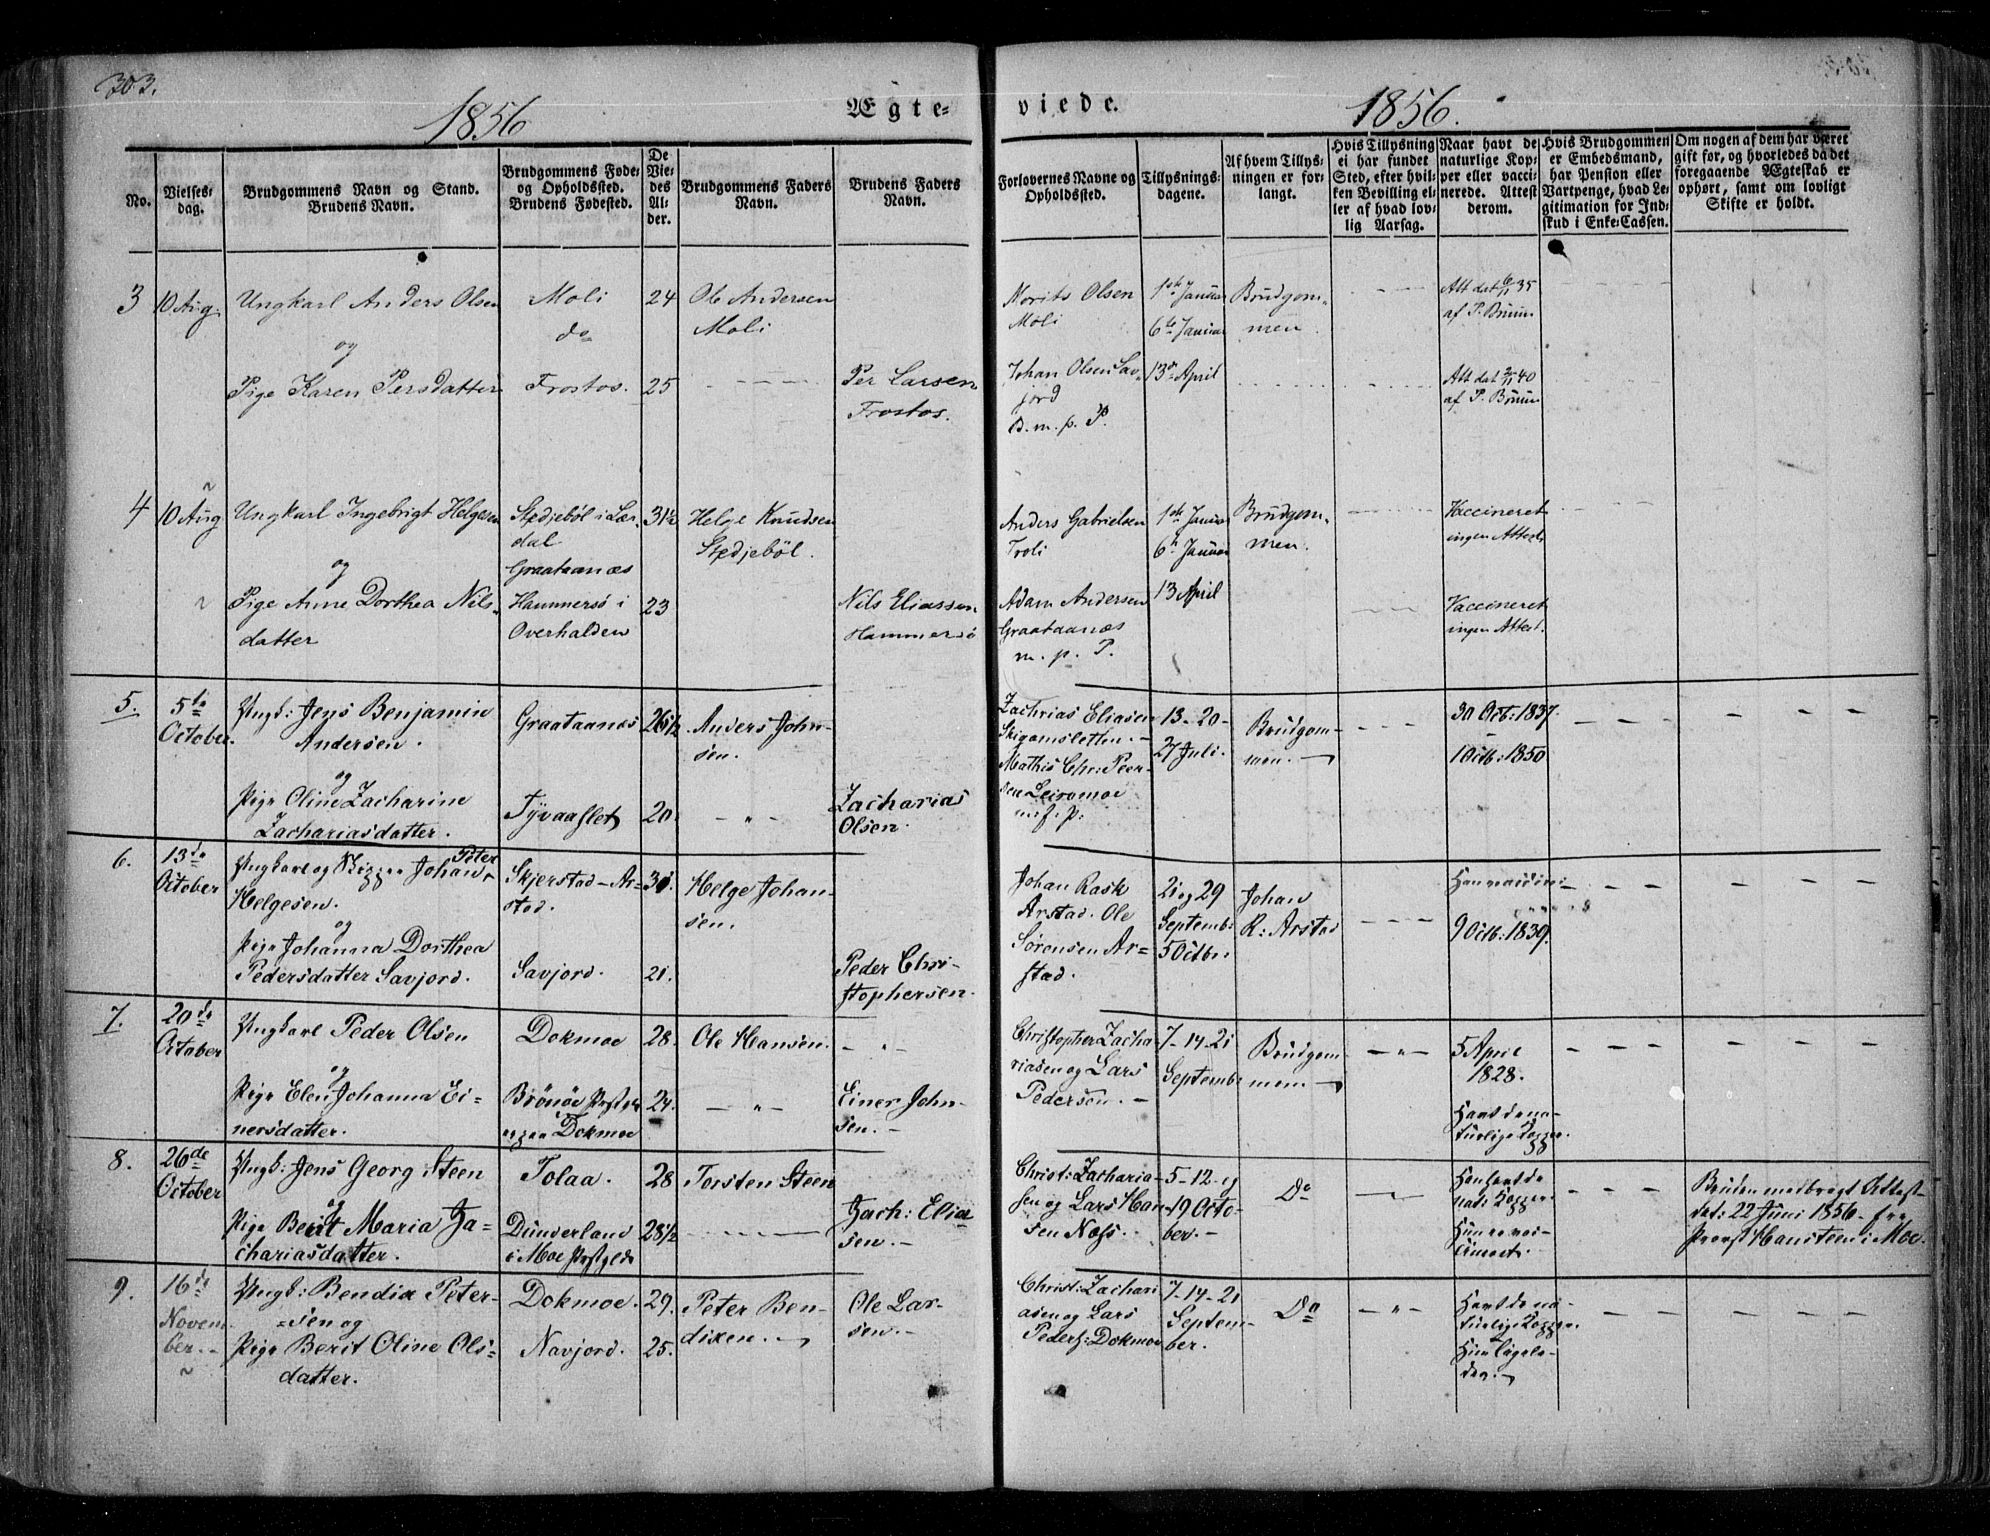 303.
1856
Ægte=
viede.
1856.
No.
Vielses=
dag.
Brudgommens Navn og Stand.
Brudens Navn.
Brudgommens Føde=
og Opholdssted.
Brudens Fødested.
De
Vie=
des
Al=
der.
Brudgommens Faders
Navn.
Brudens Faders
Navn.
Forlovernes Navne og
Opholdssted.
Tillysnings=
dagene.
Af hvem Tillys=
ningen er for=
langt.
Hvis Tillysning
ei har fundet
Sted, efter hvil=
ken Bevilling el=
ler af hvad lov=
lig Aarsag.
Naar havt de
naturlige Kop=
per eller vacci=
nerede. Attest
derom.
Hvis Brudgommen
er Embedsmand,
har Pension eller
Vartpenge, hvad Le=
gitimation for Ind=
skud i Enke=Cassen.
Om nogen af dem har været
gift før, og hvorledes da det
foregaaende Ægteskab er
ophørt, samt om lovligt
Skifte er holdt.
3
10 Aug.
Ungkarl Anders Olsen
og
Pige Karen Persdatter
Moli
do
Frostos.
24
25
Ole Andersen
Moli
Per Larsen
Frostos.
Norits Olsen
Moli
Johan Olsen Sav-
jord
B. m. p. P.
1ste Januar
6te Januar
13de April
Brudgom-
men.
Att dat 6/11 35
af P. Bruun
Att dat 2/11 40
af P. Bruun
4
10 Aug.
Ungkarl Ingebrigt Helgesen
og
Pige Anne Dorthea Nils-
datter
Stedjeböl i Lær
dal
Graataanæs
Hammersö i
Overhalden
31½
23
Helge Knudsen
Stedjeböl.
Nils Eliassen
Hammersö
Anders Gabrielsen
Troli
Adam Andersen
Graataanæs
m. p. P.
1ste Januar
6te Januar
13 April
Brudgom-
men.
Vaccineret
ingen Attest.
Vaccineret
ingen Attest.
5.
5te
October.
Ungk: Jens Benjamin
Andersen.
og
Pige Oline Zacharine
Zachariasdatter.
Graataanæs
Tyvaaflet
26½
20.
Anders John-
sen.
Zacharias
Olsen.
Zachrias Eliasen
Skigamsletten. -
Mathis Chr: Peer-
sen Leiromoe
m. f. p.
13 - 20 -
27 Juli.
Brudgom-
men. -
30 Oct: 1837.
1 Octb: 1850
6.
13de
October
Ungkarl og Johan Peter
Helgesen.
og
Pige Johanna Dorthea
Pedersdatter Savjord.
Skjerstad - Ar-
stad.
Savjord.
30.
21.
Helge Johan-
sen.
Peder Chri-
stophersen.
Johan Rask
Arstad. Ole
Sørensen Ar-
stad.
21 og 29
Septemb:
5 Octbr.
Johan
R: Arstad
9 Octb: 1839.
7.
20de
October
Ungkarl Peder Olsen
og
Pige Elen Johanna Ei-
nersdatter.
Dokmoe
Brönöe Prstgld
Dokmoe
28.
24.
Ole Hansen.
Einer John-
sen. -
Christopher Zacha
riasen og Lars
Pedersen. -
7 - 14 - 21
Septemb:
Brudgom
men. -
5 April
1828.
Havt de na-
turlige Kopper.
8.
26de
October
Ungk: Jens Georg Steen
og
Pige Berit Maria Za-
chariasdatter.
Tolaa.
Dunderland
i Moe Prstgld
28
28½
Torsten Steen
Zach: Elia
sen. -
Christ: Zacharia-
sen og Lars Han
sen Næss.
5 - 12 - og
19 Octo-
ber. -
Do
Han havt de
nat: Kopper.
Hun vac-
cineret.
Bruden medbragt Attest
dat: 22 Juni 1856 - fra
Provst Hansteen i Moe.
9.
16de
Novem
ber. -
Ungk: Bendix Peter-
sen og
Pige Berit Oline Ols-
datter.
Dokmoe.
Navjord.
29.
25.
Peter Ben-
dixen. -
Ole Lar-
sen. -
Christ: Zachari
asen og Lars
Peders: Dokmoe
7 - 14 - 21
Septem-
ber.
Do
Havt de na-
turlige Kopper.
Hun ligele-
des. -